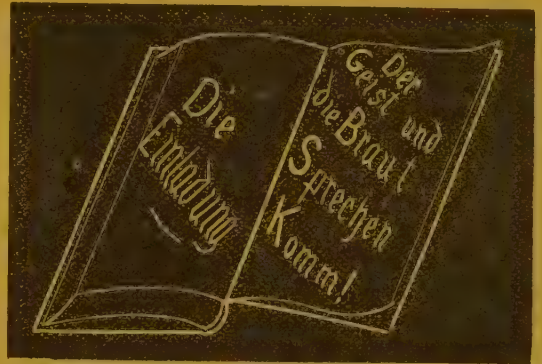 Die
Einladung
Der
Geist und
die Braut
Sprechen
Komm!